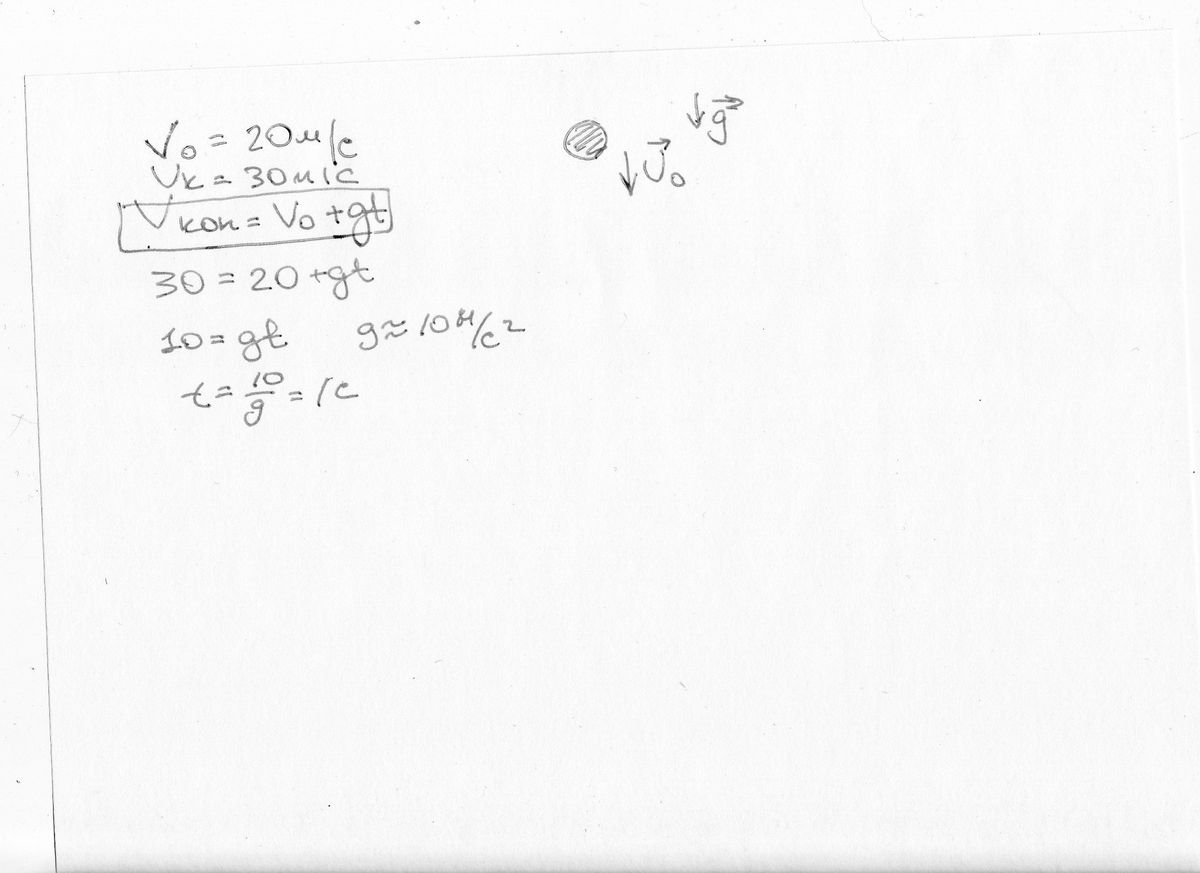 V₀ = 20м/с
Vк = 30м/с
Vкон = V₀ + gt
30 = 20 + gt
10 = gt g ≈ 10 м/с²
t = 10/g = 1с
↓g⃗
↓V⃗₀